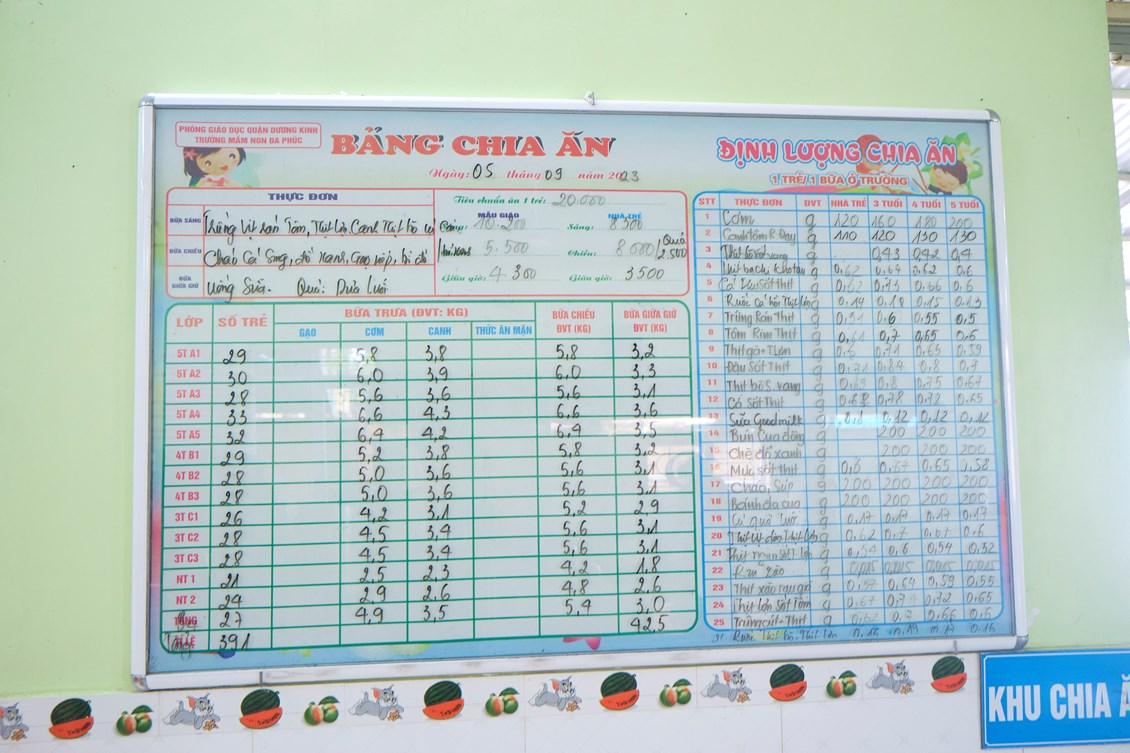 PHÒNG GIÁO DỤC QUẬN DƯƠNG KINH
TRƯỜNG MẦM NON ĐA PHÚC
BẢNG CHIA ĂN
Ngày: 05 tháng 09 năm 2023
THỰC ĐƠN
BỮA SÁNG
BỮA CHIỀU Cháo Cá
BỮA GIỮA GIỜ Uống Sữa. Quả: Dưa lưới
Tiêu chuẩn ăn 1 trẻ: 20.000
MẪU GIÁO NHÀ TRẺ
Sáng: 10.200 Sáng: 8500
5.500 Chiều: 8000 Quả 2.500
Giữa giờ: 4.300 Giữa giờ: 3500
LỚP SỐ TRẺ BỮA TRƯA (ĐVT: KG) BỮA CHIỀU ĐVT (KG) BỮA GIỮA GIỜ ĐVT (KG)
GẠO CƠM CANH THỨC ĂN MẶN
5T A1 29 5,8 3,8 5,8 3,2
5T A2 30 6,0 3,9 6,0 3,3
5T A3 28 5,6 3,6 5,6 3,1
5T A4 33 6,6 4,3 6,6 3,6
5T A5 32 6,4 4,2 6,4 3,5
4T B1 29 5,2 3,8 5,8 3,2
4T B2 28 5,0 3,6 5,6 3,1
4T B3 28 5,0 3,6 5,6 3,1
3T C1 26 4,2 3,1 5,2 2,9
3T C2 28 4,5 3,4 5,6 3,1
3T C3 28 4,5 3,4 5,6 3,1
NT 1 21 2,5 2,3 4,2 1,8
NT 2 24 2,9 2,6 4,8 2,6
27 4,9 3,5 5,4 3,0
391 42,5
ĐỊNH LƯỢNG CHIA ĂN
1 TRẺ/1 BỮA Ở TRƯỜNG
STT THỰC ĐƠN ĐVT NHÀ TRẺ 3 TUỔI 4 TUỔI 5 TUỔI
1 Cơm g 120 160 180 200
2 Canh g 110 120 130 130
3 g 0,43 0,42 0,4
4 g 0,62 0,64 0,62 0,6
5 Sốt thịt g
6 Ruốc g 0,14 0,18 0,15 0,13
7 Trứng Rán Thịt g 0,6 0,55 0,5
8 Tôm Rim Thịt g 0,61 0,7 0,65 0,6
9 Thịt gà g 0,6 0,71 0,65 0,59
10 Đậu Sốt Thịt g 0,84 0,8 0,7
11 Thịt bò S. vang g 0,69 0,8 0,75 0,67
12 Cá Sốt Thịt g 0,68 0,78 0,72 0,65
13 Sữa Goodmilk g 0,12 0,12 0,12
14 Bún Cua đồng g 200 200 200
15 Chè đỗ xanh g 200 200 200
16 Mực sốt thịt g 0,6 0,67 0,65
17 Cháo, Súp g 200 200 200 200
18 Bánh đa cua g 200 200 200 200
19 g 0,17 0,17 0,17 0,17
20 g 0,62 0,7
21 g 0,54 0,6 0,54 0,52
22 g 0,015 0,015 0,015 0,015
23 Thịt xào g 0,57 0,64 0,59 0,55
24 Thịt lợn Sốt Tôm g 0,67 0,72 0,65
25 Trứng cút + Thịt g 0,66 0,6
KHU CHIA